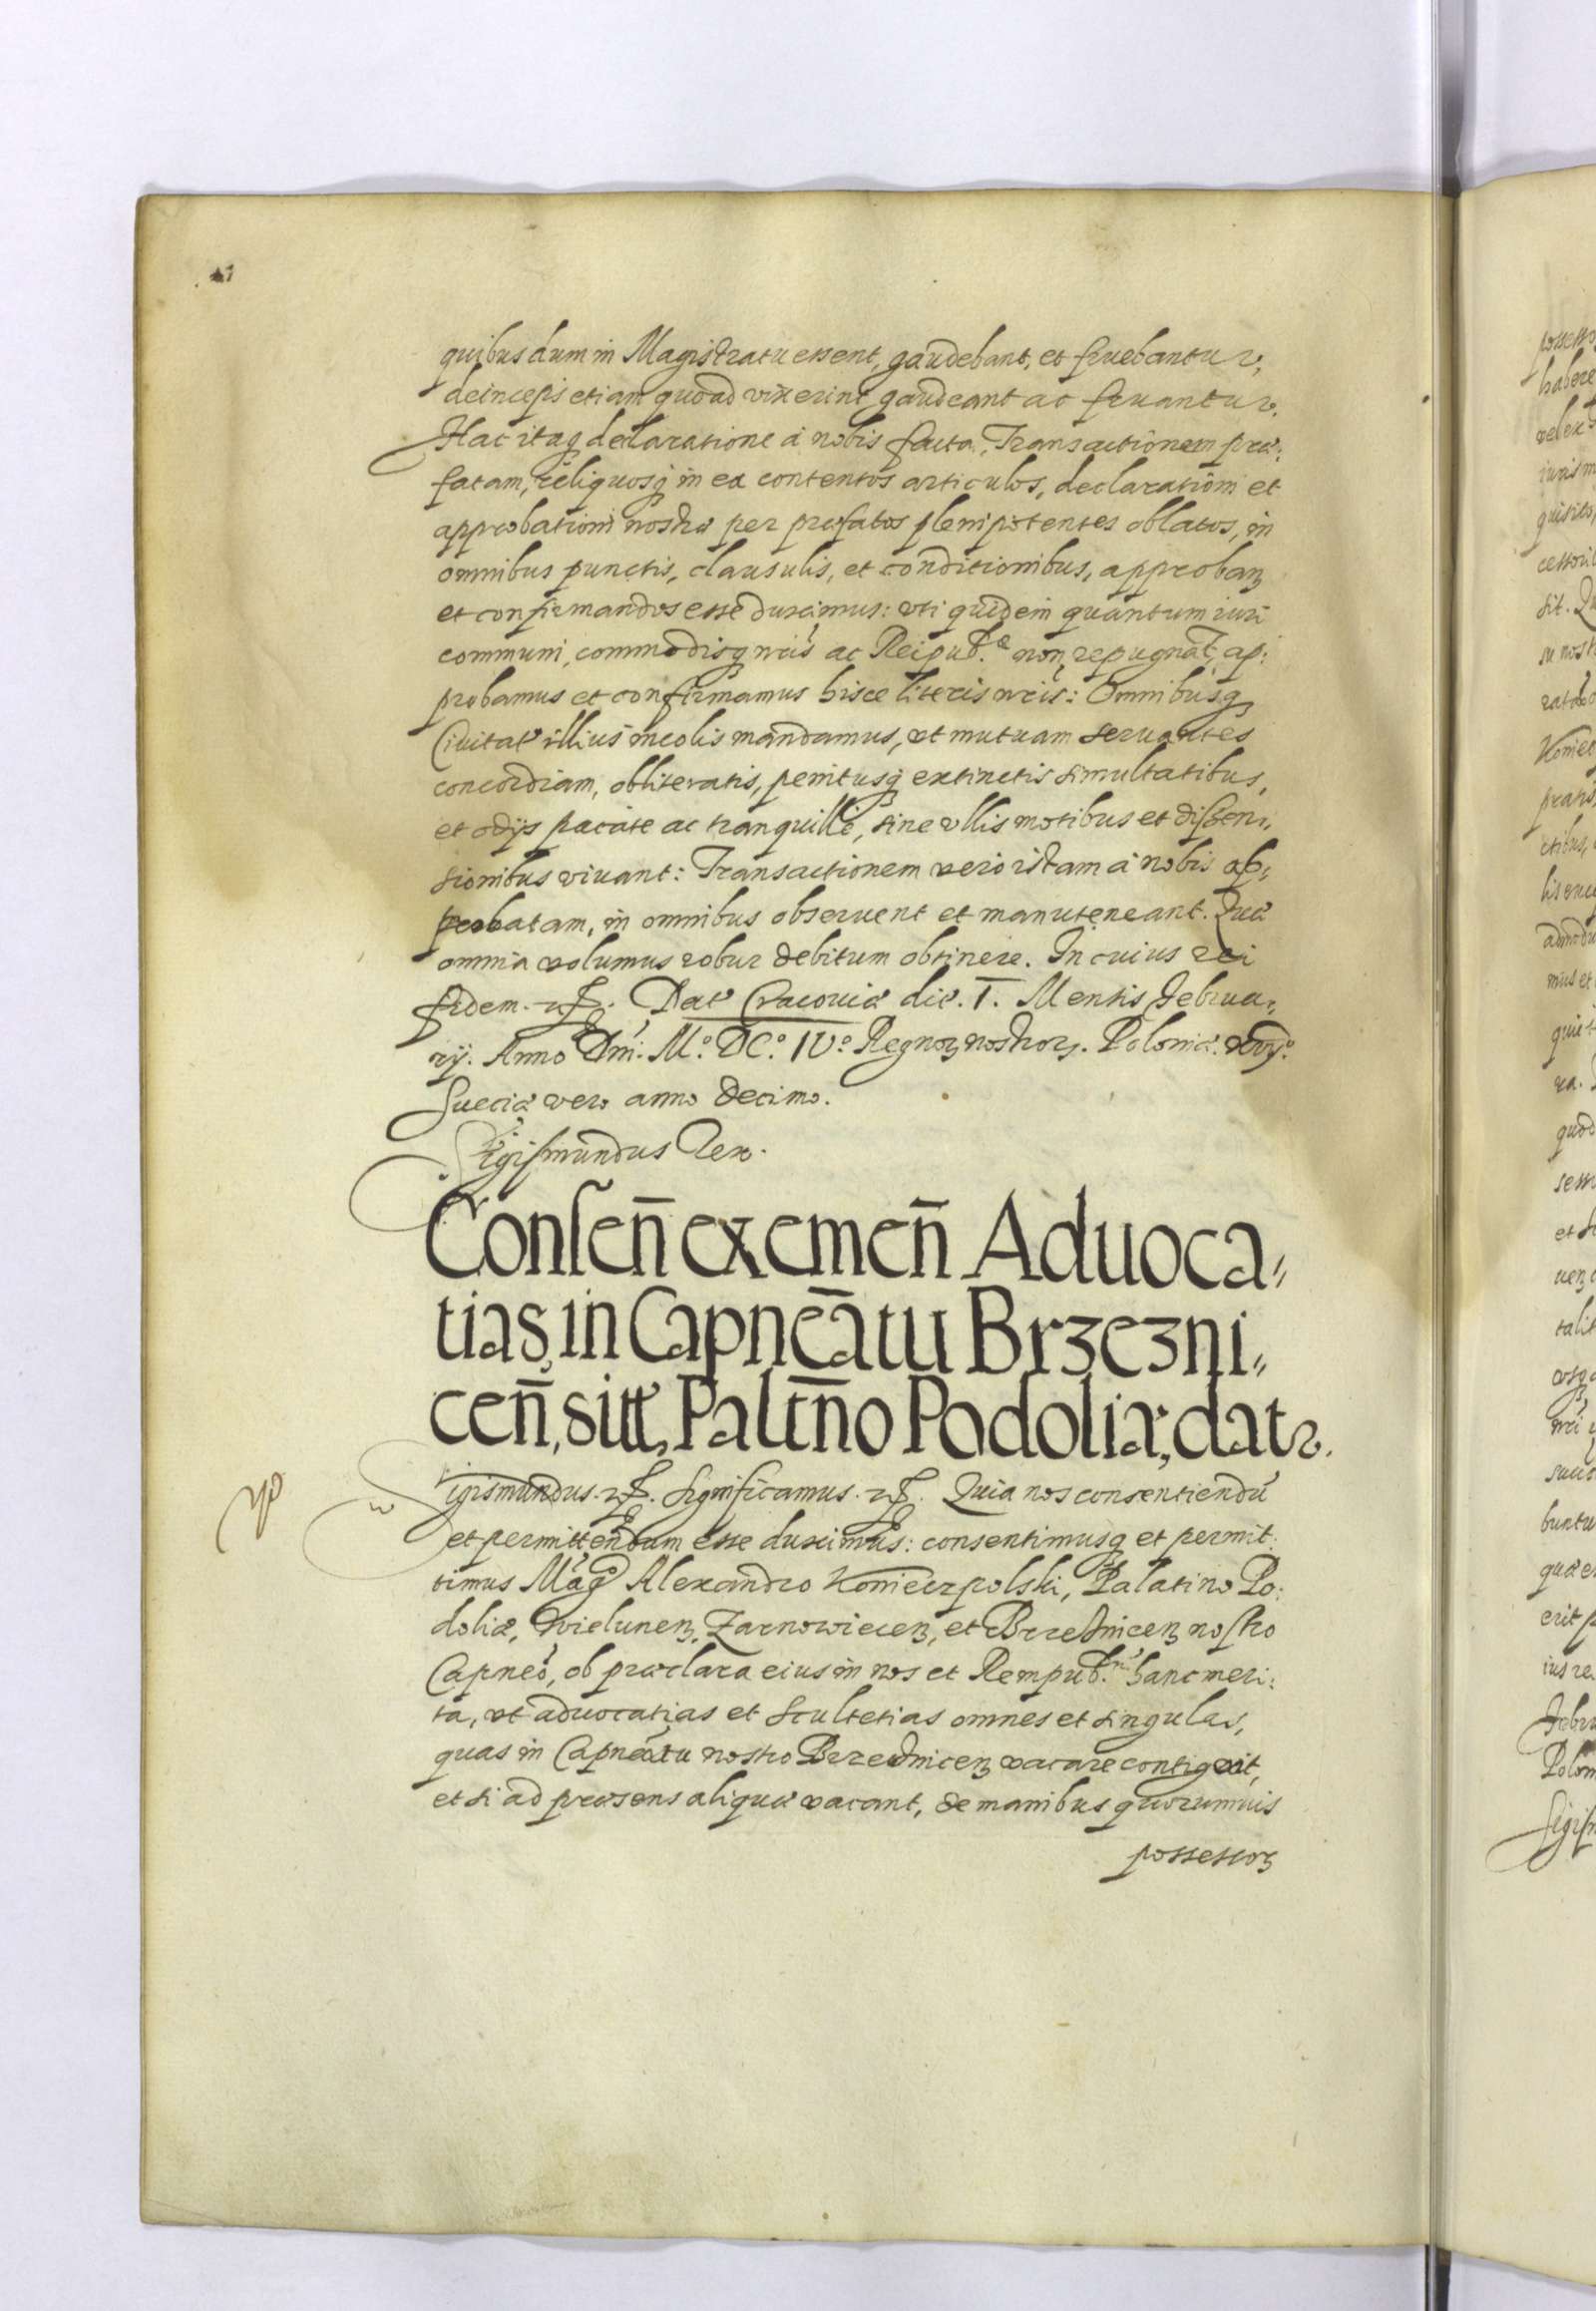 quibus dum in Magistratu essent, gaudebant, et fruebantur,
deinceps etiam quoad vixerint gaudeant ac fruantur.
Hac itaq declaratione à nobis facta, Transactionem præ:
fatam, reliquosq in ea contentos articulos, declarationi et
approbationi nostræ per præfatos plenipotentes oblatos, in
omnibus punctis, clausulis, et conditionibus, approbanz
et confirmandos esse duximus: uti quidem quantum iuri
communi, commodisq nrīs ac Reipub.æ non repugnāt, ap:
probamus et confirmamus hisce literis nrīs: Omnibusq
Ciuitatꝭ illius incolis mandamus, ut mutuam seruantes
concordiam, obliteratis, penitusq extinctis simultatibus,
et odijs pacate ac tranquille, sine ullis motibus et dissen:
sionibus viuant: Transactionem vero istam à nobis ap:
probatam, in omnibus obseruent et manuteneant. Quæ
omnia volumus robur debitum obtinere. In cuius rei
fidem. ꝛꝭ. Datꝭ Cracouiæ die. I. Mensis Februa:
rij. Anno Dni: M.º DC.º IV.º Regnoꝝ nostroꝝ. Poloniæ. xvij.º
Sueciæ vero anno decimo.
Sigismundus Rex.
Consen̄ exemen̄ Aduoca:
tias, in Capnēatu Brzezni:
cen̄, sitꝭ, Paltn̄o Podoliæ, datꝛ.
Sigismundus. ꝛꝭ. Significamus. ꝛꝭ. Quia nos consentiendū
et permittendum esse duximus: consentimusq et permit:
timus Mag.co Alexandro Koniecpolski, Palatino Po:
doliæ, Wielunenꝫ, Zarnowiecenꝫ, et Brzeznicenꝫ nostro
Capneo, ob præclara eius in nos et Rempub.m hanc meri:
ta, ut aduocatias et Scultetias omnes et singulas,
quas in Capneātu nostro Brzeznicenꝫ vacare contigerit,
et si ad præsens aliquæ vacant, de manibus quorumuis
possessoꝝ